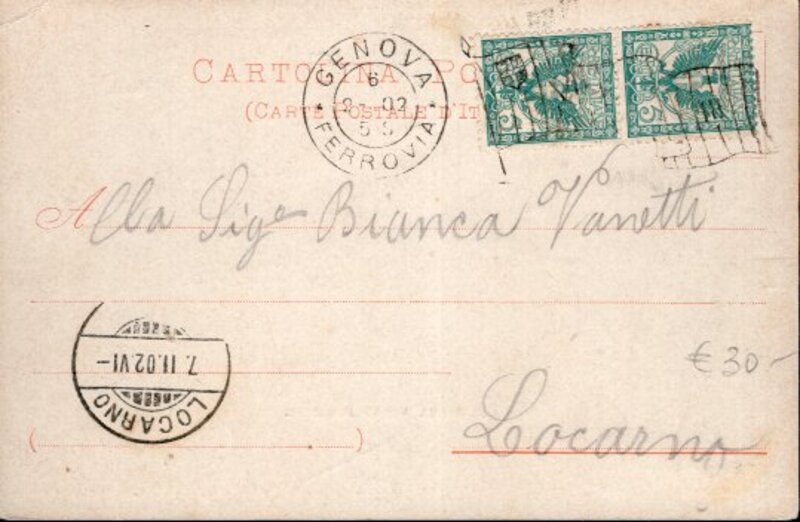 CARTOLINA PO
(CARTE POSTALE D'IT
GENOVA
6
2- 02
5 S
FERROVIA
5
5
Alla Sigª Bianca Vanetti
7. II. 02. VI-
LOCARNO
€ 30-
Locarno.
( )